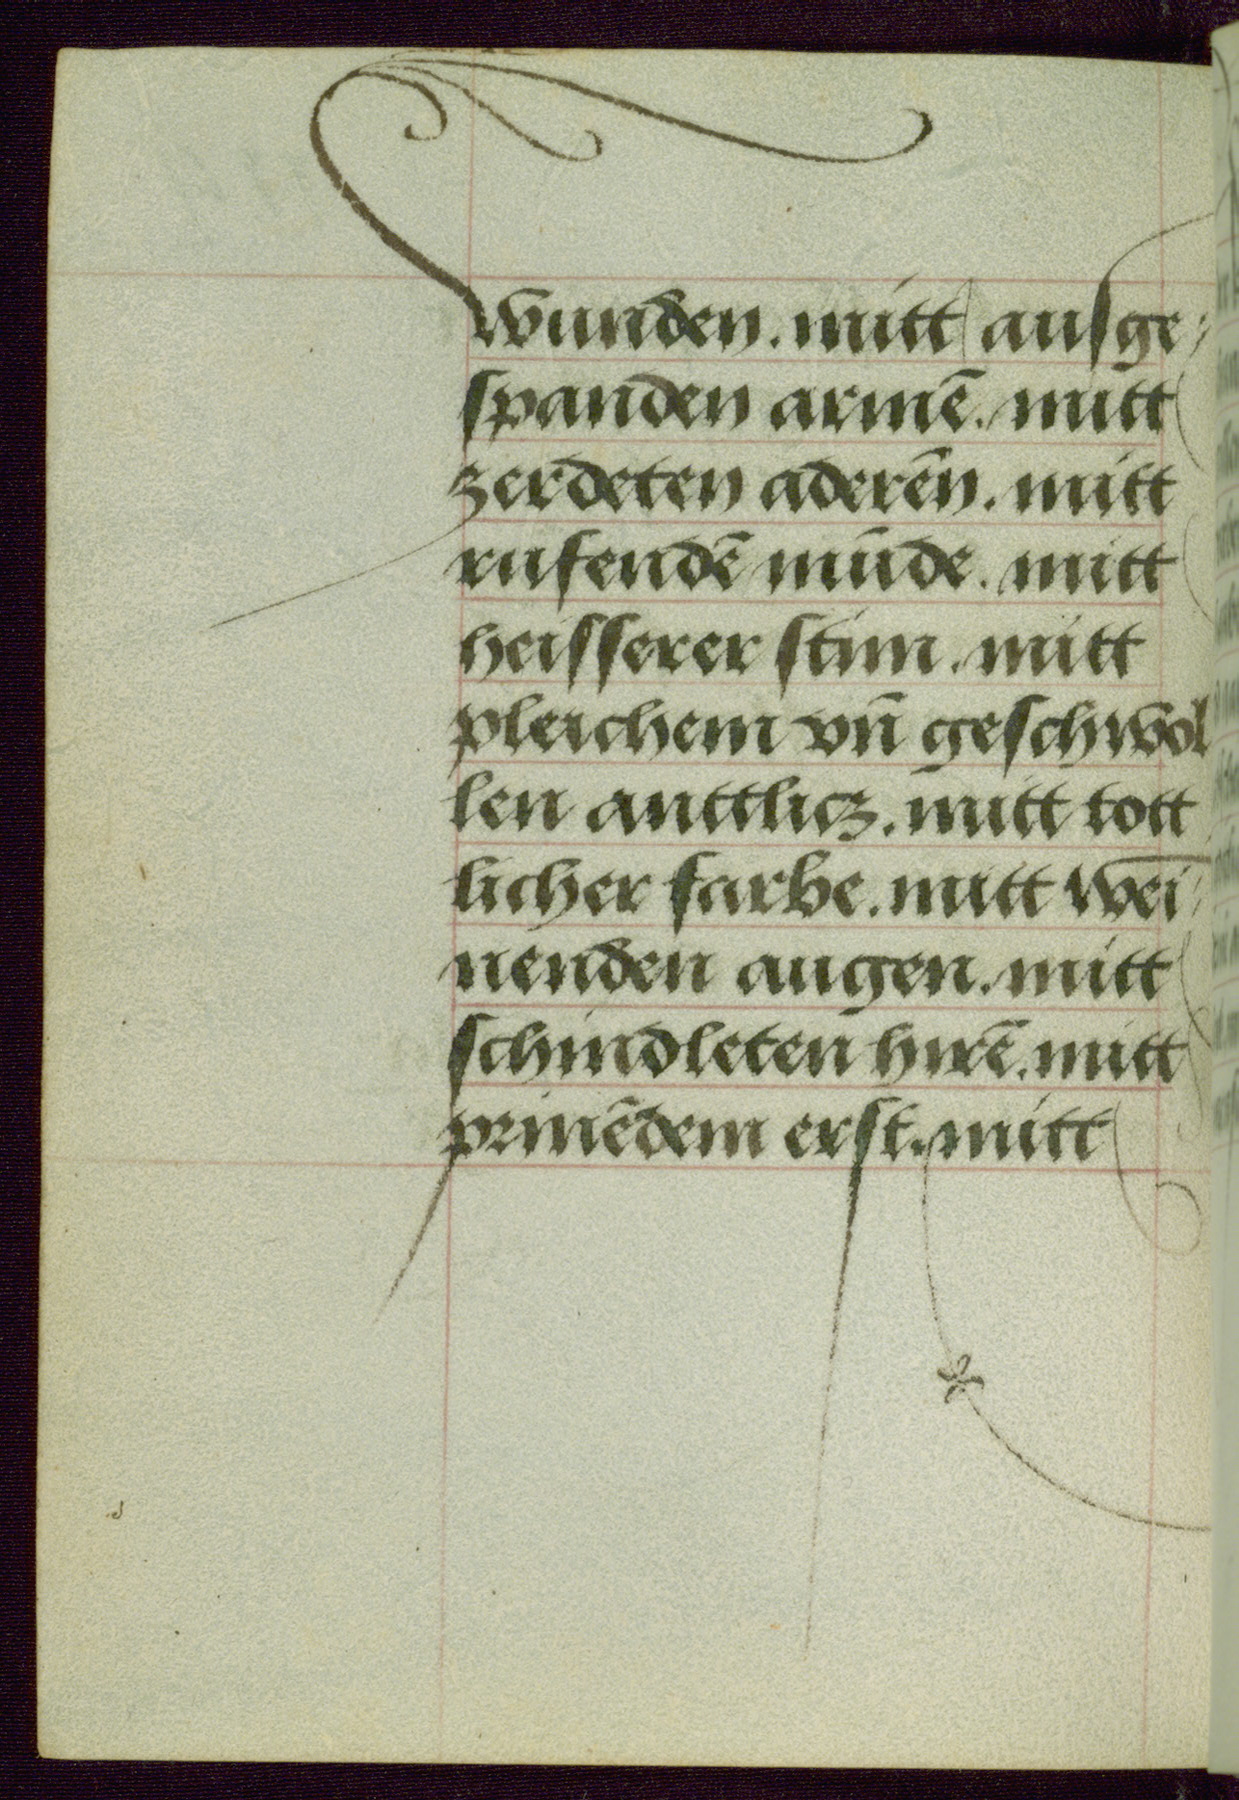 wunden. mitt ausge⸗
spanden armē. mitt
zerdeten aderēn. mitt
rufendē mūde. mitt
heisserer stim. mitt
pleichem vn̄ geschwol
len anttlicz. mitt tott
licher farbe. mitt wei⸗
nenden augen. mitt
schindleten hirē. mitt
prinēdem erst. mitt